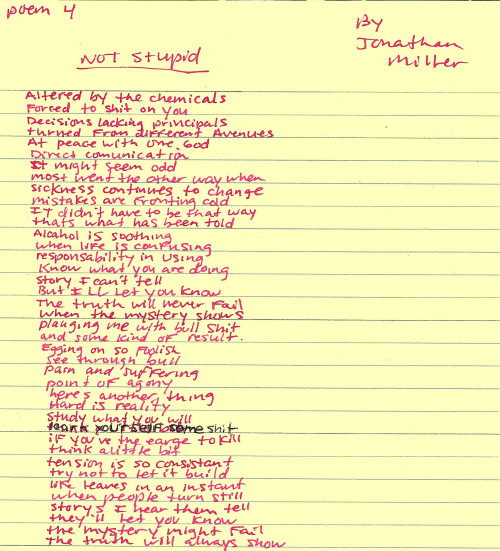 poem 4
By
Jonathan
Miller
NOT Stupid
Altered by the chemicals
Forced to shit on you
Decisions lacking principals
turned From different Avenues
At peace with one God
Direct comunication
It might seem odd
most went the other way when
sickness continues to change
mistakes are fronting cold
IT didn't have to be that way
thats what has been told
Alcohol is soothing
when life is confusing
responsability in using
Know what you are doing
story I can't tell
But I LL Let you know
The truth will never Fail
when the mystery shows
plauging me with bull shit
and some kind of result.
Egging on so Foolish
see through bull
Pain and suffering
point of agony
here's another thing
Hard is reality
study what you will
yourself some shit
if you've the earge to kill
think alittle bit
tension is so consistant
try not to let it build
life leaves in an instant
when people turn still
storys I hear them tell
they'll let you know
the mystery might Fail
the truth will always show